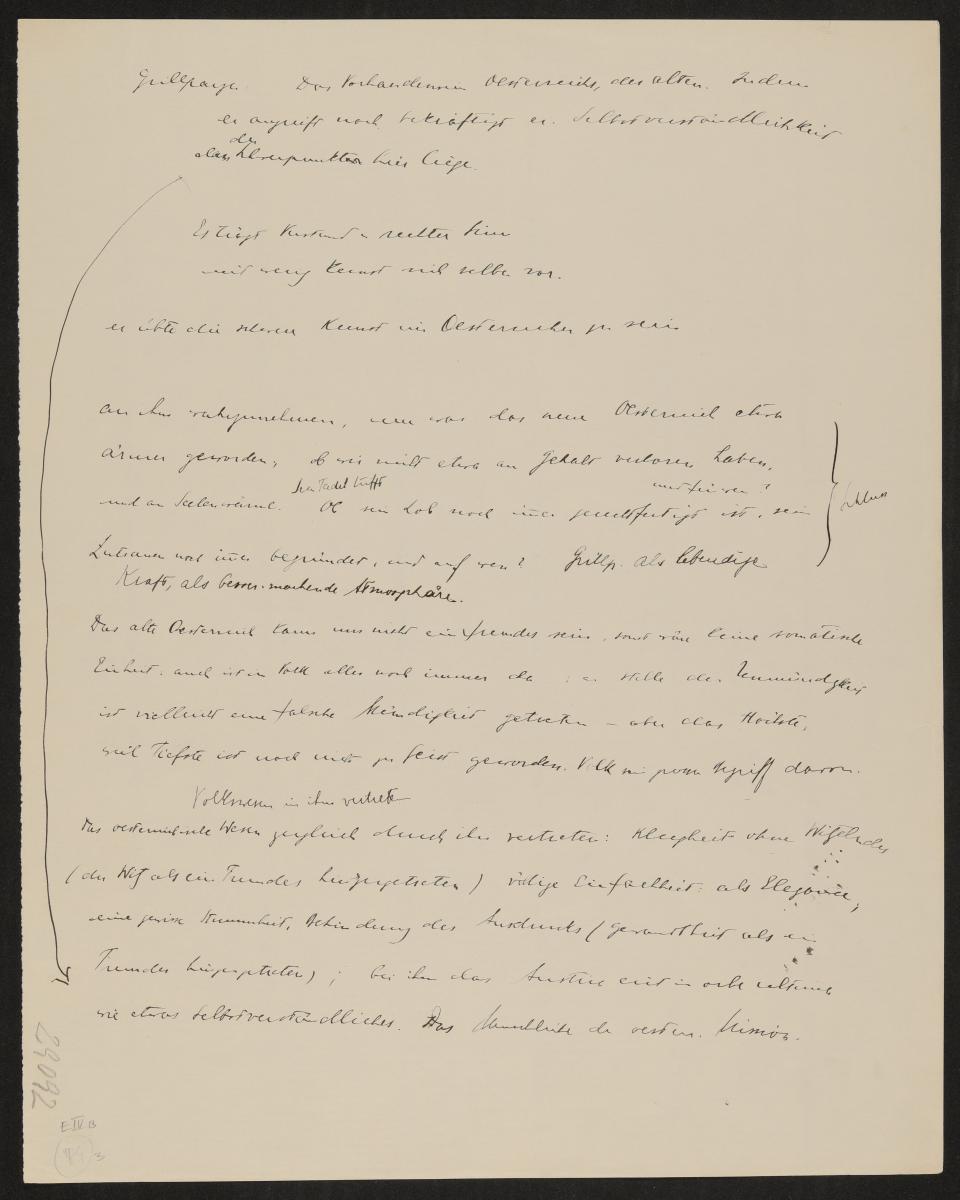 Grillparzer. Das Vorhandensein Oesterreichs, des alten. Indem
er angreift noch bekräftigt er. Selbstverständlichkeit
der
dass Schwerpunkt hier liege.
Es trägt Verstand u rechter Sinn
mit wenig Kunst sich selber vor.
er übte die schwere Kunst ein Oesterreicher zu sein
an ihm wahrzunehmen, um was das neue Oesterreich etwa
ärmer geworden, ob wir nicht etwa an Gehalt verloren haben,
sein Tadel trifft
und für wen?
und an Seelenwärme. Ob sein Lob noch immer gerechtfertigt ist, sein
Schluss
Zutrauen noch immer begründet, und auf wen? Grillp. als lebendige
Kraft, als besser-machende Atmosphäre.
Das alte Oesterreich kann uns nicht ein fremdes sein, sonst wäre keine somatische
Einheit: auch ist im Volk alles noch immer da: an Stelle der Unmündigkeit
ist vielleicht eine falsche Mündigkeit getreten – aber das Höchste,
weil Tiefste ist noch nicht zu Geist geworden. Volk ein Begriff davon.
Volkswesen in ihm vertreten
Das oesterreichische Wesen zugleich durch ihn vertreten: Klugheit ohne Witzelndes
(der Witz als ein Fremdes hinzugetreten) völlige Einfachheit: als Eleganz,
eine gewisse Stummheit, Behinderung des Ausdrucks (Gewandtheit als ein
Fremdes hinzugetreten); bei ihm das
wie etwas Selbstverständliches. Das Menschliche der oesterr. Mission.
29092
E IV B
3